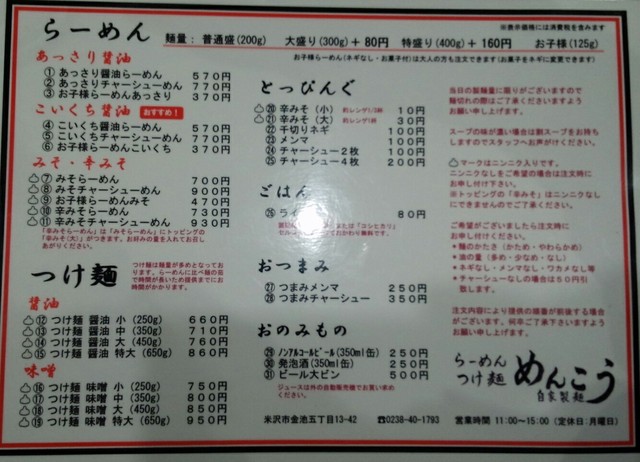 らーめん
麺量： 普通盛(200g) 大盛り(300g)＋80円 特盛り(400g)＋160円 お子様(125g)
※表示価格には消費税を含みます
お子様らーめん(ネギなし・お菓子付)は大人の方も注文できます(お菓子をネギに変更できます)
あっさり醤油
① あっさり醤油らーめん 570円
② あっさりチャーシューめん 770円
③ お子様らーめんあっさり 370円
こいくち醤油 おすすめ！
④ こいくち醤油らーめん 570円
⑤ こいくちチャーシューめん 770円
⑥ お子様らーめんこいくち 370円
みそ・辛みそ
⑦ みそらーめん 700円
⑧ みそチャーシューめん 900円
⑨ お子様らーめんみそ 470円
⑩ 辛みそらーめん 730円
⑪ 辛みそチャーシューめん 930円
「辛みそらーめん」は「みそらーめん」にトッピングの
「辛みそ(大)」がつきます。お好みの量を入れてお召し
あがりください。
つけ麺
つけ麺は麺量が多めとなってお
ります。らーめんに比べ麺の茹で
時間が長いため提供までにお
時間がかかります。
醤油
⑫ つけ麺 醤油 小 (250g) 660円
⑬ つけ麺 醤油 中 (350g) 710円
⑭ つけ麺 醤油 大 (450g) 760円
⑮ つけ麺 醤油 特大 (650g) 860円
味噌
⑯ つけ麺 味噌 小 (250g) 750円
⑰ つけ麺 味噌 中 (350g) 800円
⑱ つけ麺 味噌 大 (450g) 850円
⑲ つけ麺 味噌 特大 (650g) 950円
とっぴんぐ
⑳ 辛みそ (小) 約レンゲ1/3杯 10円
㉑ 辛みそ (大) 約レンゲ1杯 30円
㉒ 千切りネギ 100円
㉓ メンマ 100円
㉔ チャーシュー２枚 100円
㉕ チャーシュー４枚 200円
ごはん
㉖ ラ 80円
または「コシヒカリ」
おかわり無料です。
おつまみ
㉗ つまみメンマ 250円
㉘ つまみチャーシュー 350円
おのみもの
㉙ ノンアルコールビール(350ml缶) 250円
㉚ 発泡酒(350ml缶) 250円
㉛ ビール大ビン 500円
ジュースは外の自動販売機でお買い求め
ください。
当日の製麺量に限りがございますので
麺切れの際はご了承くださいますよう
お願い申し上げます。
スープの味が濃い場合は割スープをお持ち
しますのでスタッフへお声がけください。
マークはニンニク入りです。
ニンニクなしをご希望の場合は注文時に
お申し付け下さい。
※トッピングの「辛みそ」はニンニクなし
にできませんのでご了承ください。
ご希望がございましたら注文時に
お申し付けください。
・麺のかたさ (かため・やわらかめ)
・油の量 (多め・少なめ・なし)
・ネギなし・メンマなし・ワカメなし等
・チャーシューなしの場合は50円引
致します。
注文内容により提供の順番が前後する場合
がございます。何卒ご了承下さいますよう
お願い申し上げます。
らーめん
つけ麺
めんこう
自家製麺
米沢市金池五丁目13-42 ☎0238-40-1793 営業時間 11:00～15:00 (定休日:月曜日)